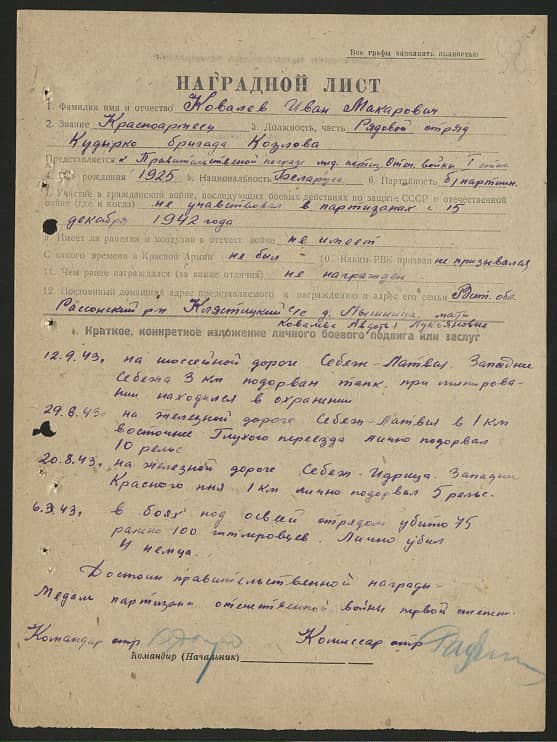 Все графы заполнять полностью
НАГРАДНОЙ ЛИСТ
1. Фамилия имя и отчество Ковалев Иван Макарович
2. Звание Красноармеец 3. Должность, часть Рядовой отряд
Кудырко бригада Козлова
Представляется к Правительственной награде мед. партиз. Отеч. войны I степ.
4. Год рождения 1925 5. Национальность Беларусс 6. Партийность б/партийн.
7. Участие в гражданской войне, последующих боевых действиях по защите СССР и отечественной
войне (где и когда) не учавствовал в партизанах с 15
декабря 1942 года
9. Имеет ли ранения и контузии в отечест. войне не имеет
С какого времени в Красной Армии не был 10. Каким РВК призван не призывался
11. Чем ранее награждался (за какие отличия) не награжден
12. Постоянный домашний адрес представляемого к награждению и адрес его семьи Вит. обл.
Россонский р-н Клястицкий с/с д. мать
Ковалева Авдотья Лукьяновна
I. Краткое, конкретное изложение личного боевого подвига или заслуг
12.9.43г. на шоссейной дороге Себеж-Латвия. Западнее
Себежа 3 км подорван танк. при минирова-
нии находился в охранении
29.8.43г. на железной дороге Себеж-Латвия в 1 км
восточнее Глухого переезда лично подорвал
10 рельс
20.8.43г. на железной дороге Себеж-Идрица. Западнее
Красного пня 1 км лично подорвал 5 рельс.
6.3.43г. в боях под Освей отрядом убито 75
ранено 100 гитлеровцев. Лично убил
4 немца.
Достоин правительственной награды-
Медаль партизана отечественной войны первой степени.
Командир отр. Комиссар отр.
Командир (Начальник)